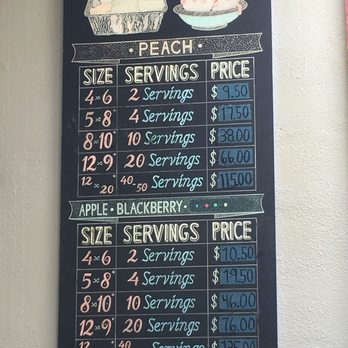 · PEACH ·
SIZE SERVINGS PRICE
4×6 2 Servings $9.50
5×8" 4 Servings $17.50
8×10" 10 Servings $38.00
12×9" 20 Servings $66.00
12×20" 40-50 Servings $115.00
APPLE · BLACKBERRY ·
SIZE SERVINGS PRICE
4×6 2 Servings $10.50
5×8" 4 Servings $19.50
8×10" 10 Servings $46.00
12×9" 20 Servings $76.00
12 40 Servings